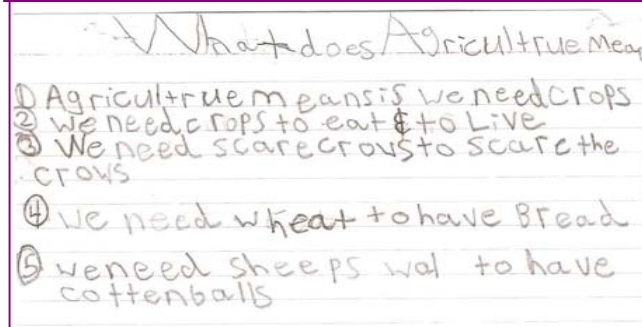 What does Agricultrue Mean
① Agricultrue meansis we need crops
② we need crops to eat & to Live
③ We need scarecrows to scare the
crows
④ we need wheat to have Bread
⑤ we need sheeps wal to have
cottenballs